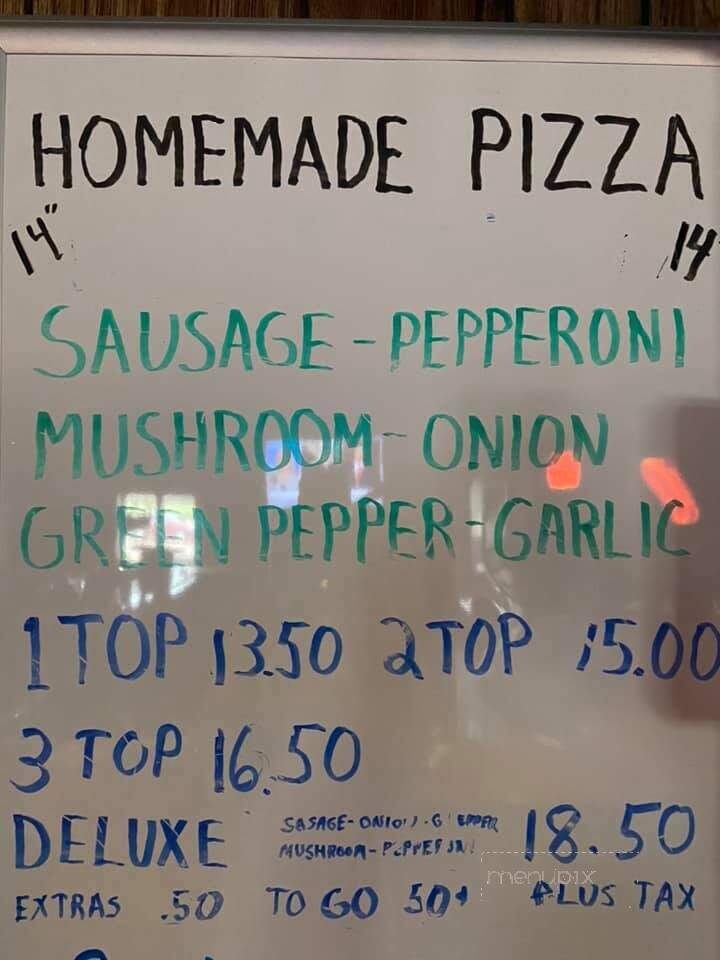 HOMEMADE PIZZA
14" 14
SAUSAGE - PEPPERONI
MUSHROOM - ONION
GREEN PEPPER - GARLIC
1 TOP 13.50 2 TOP 15.00
3 TOP 16.50
DELUXE SASAGE - ONION - G EPPER 18.50
MUSHROOM - PEPPERONI
menupix
EXTRAS .50 TO GO 50¢ PLUS TAX